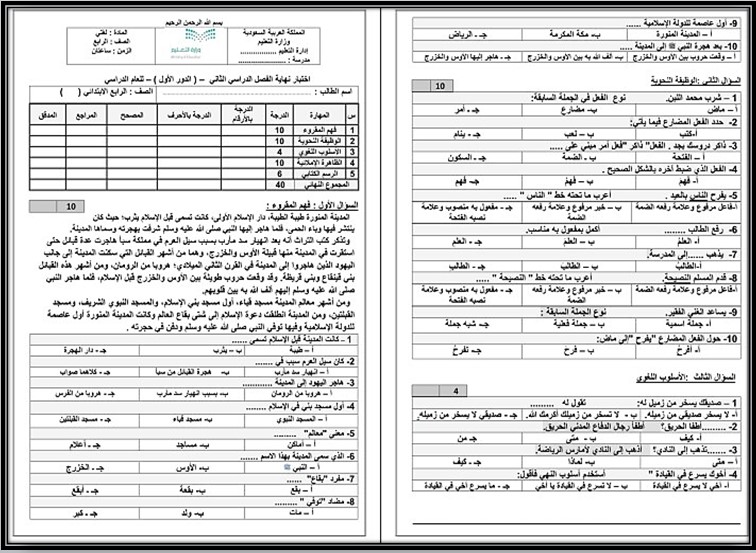 بسم الله الرحمن الرحيم
المملكة العربية السعودية
وزارة التعليم
إدارة التعليم ..................
مدرسة : ..................
وزارة التعليم
المادة : لغتي
الصف : الرابع
الزمن : ساعتان
اختبار نهاية الفصل الدراسي الثاني – ( الدور الأول ) – للعام الدراسي
اسم الطالب : .................. الصف : الرابع الابتدائي ( )
س المهارة الدرجة الدرجة بالأرقام الدرجة بالأحرف المصحح المراجع المدقق
1 فهم المقروء 10
2 الوظيفة النحوية 10
3 الأسلوب اللغوي 4
4 الظاهرة الإملائية 10
5 الرسم الكتابي 6
المجموع النهائي 40
السؤال الأول : فهم المقروء : 10
المدينة المنورة طيبة الطيبة، دار الإسلام الأولى، كانت تسمى قبل الإسلام يثرب؛ حيث كان
ينتشر فيها وباء الحمى، فلما هاجر إليها النبي صلى الله عليه وسلم شرفت بهجرته وسماها المدينة.
وتذكر كتب التراث أنه بعد انهيار سد مأرب بسبب سيل العرم في مملكة سبأ هاجرت عدة قبائل حتى
استقرت في المدينة منها قبيلة الأوس والخزرج، وهما من أشهر القبائل التي سكنت المدينة إلى جانب
اليهود الذين هاجروا إلى المدينة في القرن الثاني الميلادي؛ هروبا من الرومان، ومن أشهر هذه القبائل
بني قينقاع وبني قريظة. وقد وقعت حروب طويلة بين الأوس والخزرج قبل الإسلام، فلما هاجر النبي
صلى الله عليه وسلم إليهم ألف الله به بين قلوبهم.
ومن أشهر معالم المدينة مسجد قباء، أول مسجد بني في الإسلام، والمسجد النبوي الشريف، ومسجد
القبلتين، ومن المدينة انطلقت دعوة الإسلام إلى شتى بقاع العالم وكانت المدينة المنورة أول عاصمة
للدولة الإسلامية وفيها توفي النبي صلى الله عليه وسلم ودفن في حجرته .
1 – كانت المدينة قبل الإسلام تسمى ......
أ – طيبة ب – يثرب جـ - دار الهجرة
2- كان سيل العرم سبب في .......
أ – انهيار سد مأرب ب- هجرة القبائل من سبأ جـ - كلاهما صواب
3- هاجر اليهود إلى المدينة ............
أ – هروبا من الرومان ب- بسبب انهيار سد مأرب جـ - هروبا من الفرس
4- أول مسجد بني في الإسلام .........
أ – المسجد النبوي ب – مسجد قباء جـ - مسجد القبلتين
5- معنى "معالم" .........
أ – أماكن ب- مساجد جـ - أعلام
6- الذي سمى المدينة بهذا الاسم .......
أ – النبي ﷺ ب- الأوس جـ - الخزرج
7- مفرد "بقاع" .......
أ – بقع ب- بقعة جـ - أبقع
8- مضاد "توفي " .........
أ – مات ب- ولد جـ - كبر
9- أول عاصمة للدولة الإسلامية ......
أ – المدينة المنورة ب- مكة المكرمة جـ - الرياض
10- بعد هجرة النبي ﷺ إلى المدينة .....
أ – وقعت حروب بين الأوس والخزرج ب- ألف الله به بين الأوس والخزرج جـ - هاجر إليها الأوس والخزرج
السؤال الثاني :الوظيفة النحوية 10
1 – شرب محمد اللبن. نوع الفعل في الجملة السابقة:
أ – ماض ب- مضارع جـ - أمر
2- حدد الفعل المضارع فيما يأتي:
أ-أكتب ب – لعب جـ - ينام
3- ذاكر دروسك بجد . الفعل" ذاكر "فعل أمر مبني على .....
أ – الفتحة ب - الضمة جـ - السكون
4 – الفعل الذي ضبط آخره بالشكل الصحيح .
أ- فهمَ ب – فهمُ جـ - فهمِ
5- يفرح الناس بالعيد . أعرب ما تحته خط " الناس " .....
أ-فاعل مرفوع وعلامة رفعه الضمة ب – خبر مرفوع وعلامة رفعه الضمة جـ - مفعول به منصوب وعلامة نصبه الفتحة
6- رفع الطالب ........ أكمل بمفعول به مناسب.
أ- العلمُ ب – العلمَ جـ - العلمِ
7- يذهب ......إلى المدرسة.
أ-الطالبُ ب – الطالبَ جـ - الطالبِ
8- قدم المسلم النصيحة. أعرب ما تحته خط " النصيحة " .....
أ-فاعل مرفوع وعلامة رفعه الضمة ب – خبر مرفوع وعلامة رفعه الضمة جـ - مفعول به منصوب وعلامة نصبه الفتحة
9- يساعد الغني الفقير. نوع الجملة السابقة :
أ – جملة اسمية ب – جملة فعلية جـ - شبه جملة
10- حول الفعل المضارع "يفرح "إلى ماض:
أ – أفرحُ ب – فرحَ جـ - تفرحُ
السؤال الثالث :الأسلوب اللغوي 4
1 – صديقك يسخر من زميل له: تقول له .........
أ- لا يسخر صديقي من زميله. ب - لا تسخر من زميلك أكرمك الله. جـ - صديقي لا يسخر من زميله.
2- ........أطفأ الحريق؟ أطفأ رجال الدفاع المدني الحريق.
أ - كيف ب – متى جـ - من
3- .......تذهب إلى النادي؟ أذهب إلى النادي لأمارس الرياضة.
أ – متى ب- لماذا جـ - كيف
4- أخوك يسرع في القيادة " أستخدم أسلوب النهي فأقول:
أ- أخي لا يسرع في القيادة ب – لا تسرع في القيادة يا أخي جـ - ما يسرع أخي في القيادة